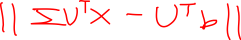 || ΣU^T x - U^T b ||